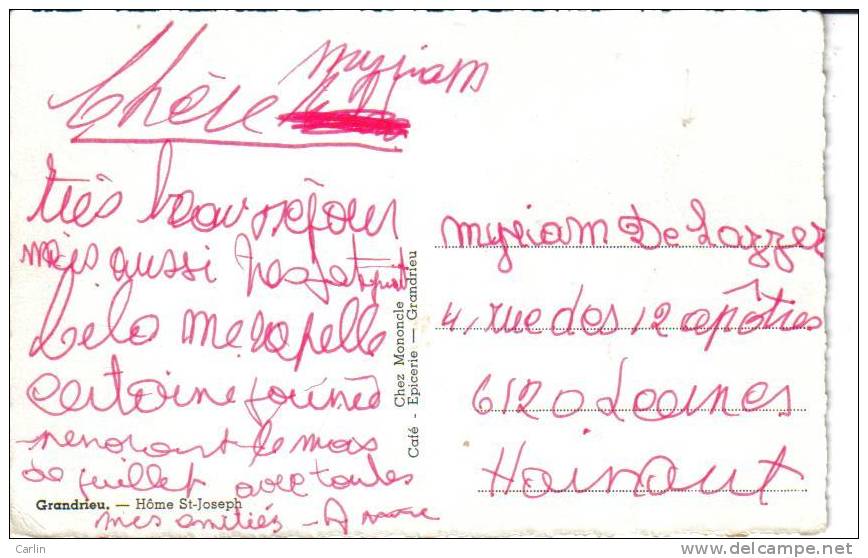 Chère myriam
très beau séjour
mais aussi très fatiguant
Cela me rapelle
certaine journée
pendant le mois
de juillet avec toutes
mes amitiés -
Grandrieu. — Hôme St-Joseph
Chez Mononcle
Café - Epicerie — Grandrieu
myriam De Lazzer
4, rue des 12 apôtres
6120
Hainaut
www.delcampe.net
Carlin